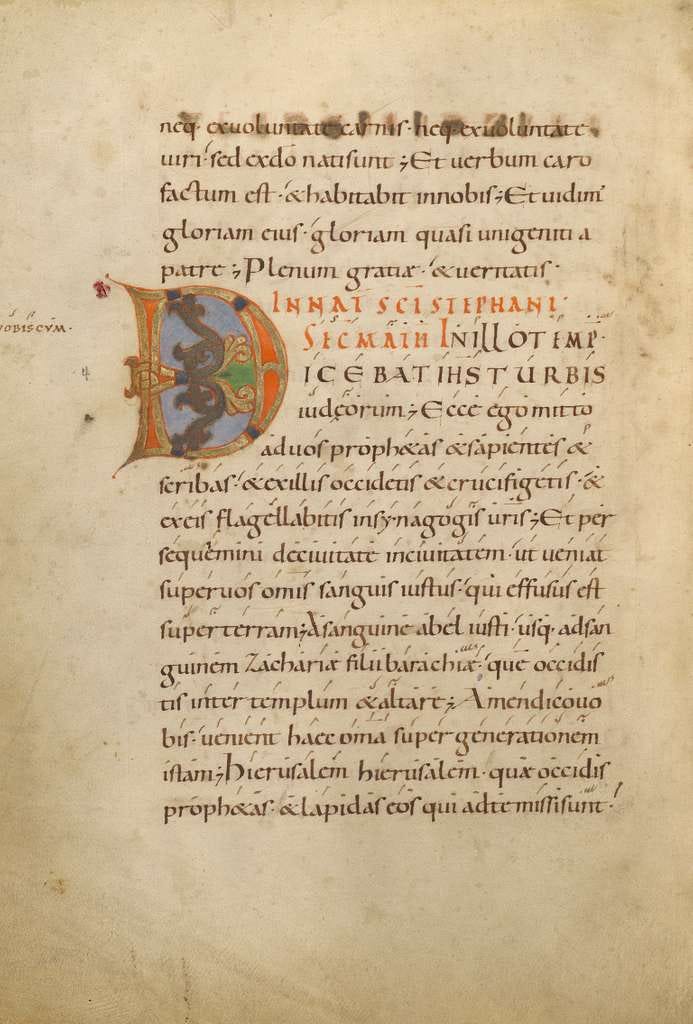 neq· exuoluntate carnis· neq· exuoluntate
uiri· sed exdo natisunt ; Et uerbum caro
factum est· & habitabit innobis ; Et uidim'
gloriam eius· gloriam quasi unigeniti a
patre ; Plenum gratiæ· & ueritatis·
OBISCVM·
IN NAT SCI STEPHANI·
SEC MATH IN ILLO TEMP·
DICEBAT IHS TURBIS
iudęorum ; Ecce ego mitto
ad uos proph&as & sapientes &
scribas· & exillis occidetis & crucifigetis· &
exeis flagellabitis insynagogis uris ; Et per
sequemini deciuitate inciuitatem· ut ueniat
super uos omis sanguis iustus· qui effusus est
super terram ; A sanguine abel iusti· usq· adsan
guinem Zachariæ filii barachiæ· quē occidis
tis inter templum & altare ; Amen dico uo
bis· uenient haec omā super generationem
istam ; Hierusalem hierusalem· quæ occidis
proph&as· & lapidas eos qui adte missi sunt·